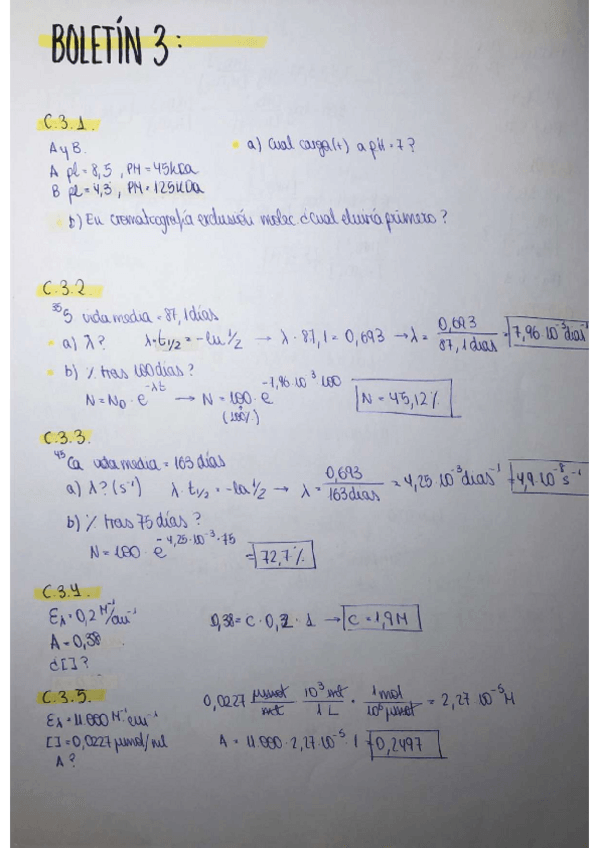 BOLETÍN 3:
C.3.1.
A y B.
• a) Cual carga(+) a pH=7?
A pI=8,5, PM=45kDa
B pI=4,3, PM=125kDa
b) En cromatografía exclusión molec. ¿cual eluirá primero?
C.3.2
³⁵S vida media=87,1 días
• a) λ? λ·t1/2=-ln 1/2 → λ·87,1=0,693 → λ= 0,693/87,1 días = 7,96·10⁻³ dias⁻¹
• b) % tras 100 días?
N=N0·e^-λt → N=100·e^-7,96·10⁻³·100 N=45,12%
(100%)
C.3.3.
⁴⁵Ca vida media=163 días
a) λ?(s⁻¹) λ·t1/2=-ln 1/2 → λ= 0,693/163 dias = 4,25·10⁻³ dias⁻¹ = 4,9·10⁻⁸ s⁻¹
b) % tras 75 días?
N=100·e^-4,25·10⁻³·75 = 72,7%
C.3.4
Ελ=0,2 M⁻¹/cm⁻¹ 0,38=C·0,2·1 → C=1,9M
A=0,38
¿[]?
C.3.5.
Ελ=11000 M⁻¹cm⁻¹ 0,0227 µmol/ml · 10³ ml/1 L · 1 mol/10⁶ µmol = 2,27·10⁻⁵ M
[]=0,0227 µmol/ml A=11.000·2,27·10⁻⁵·1=0,2497
A?